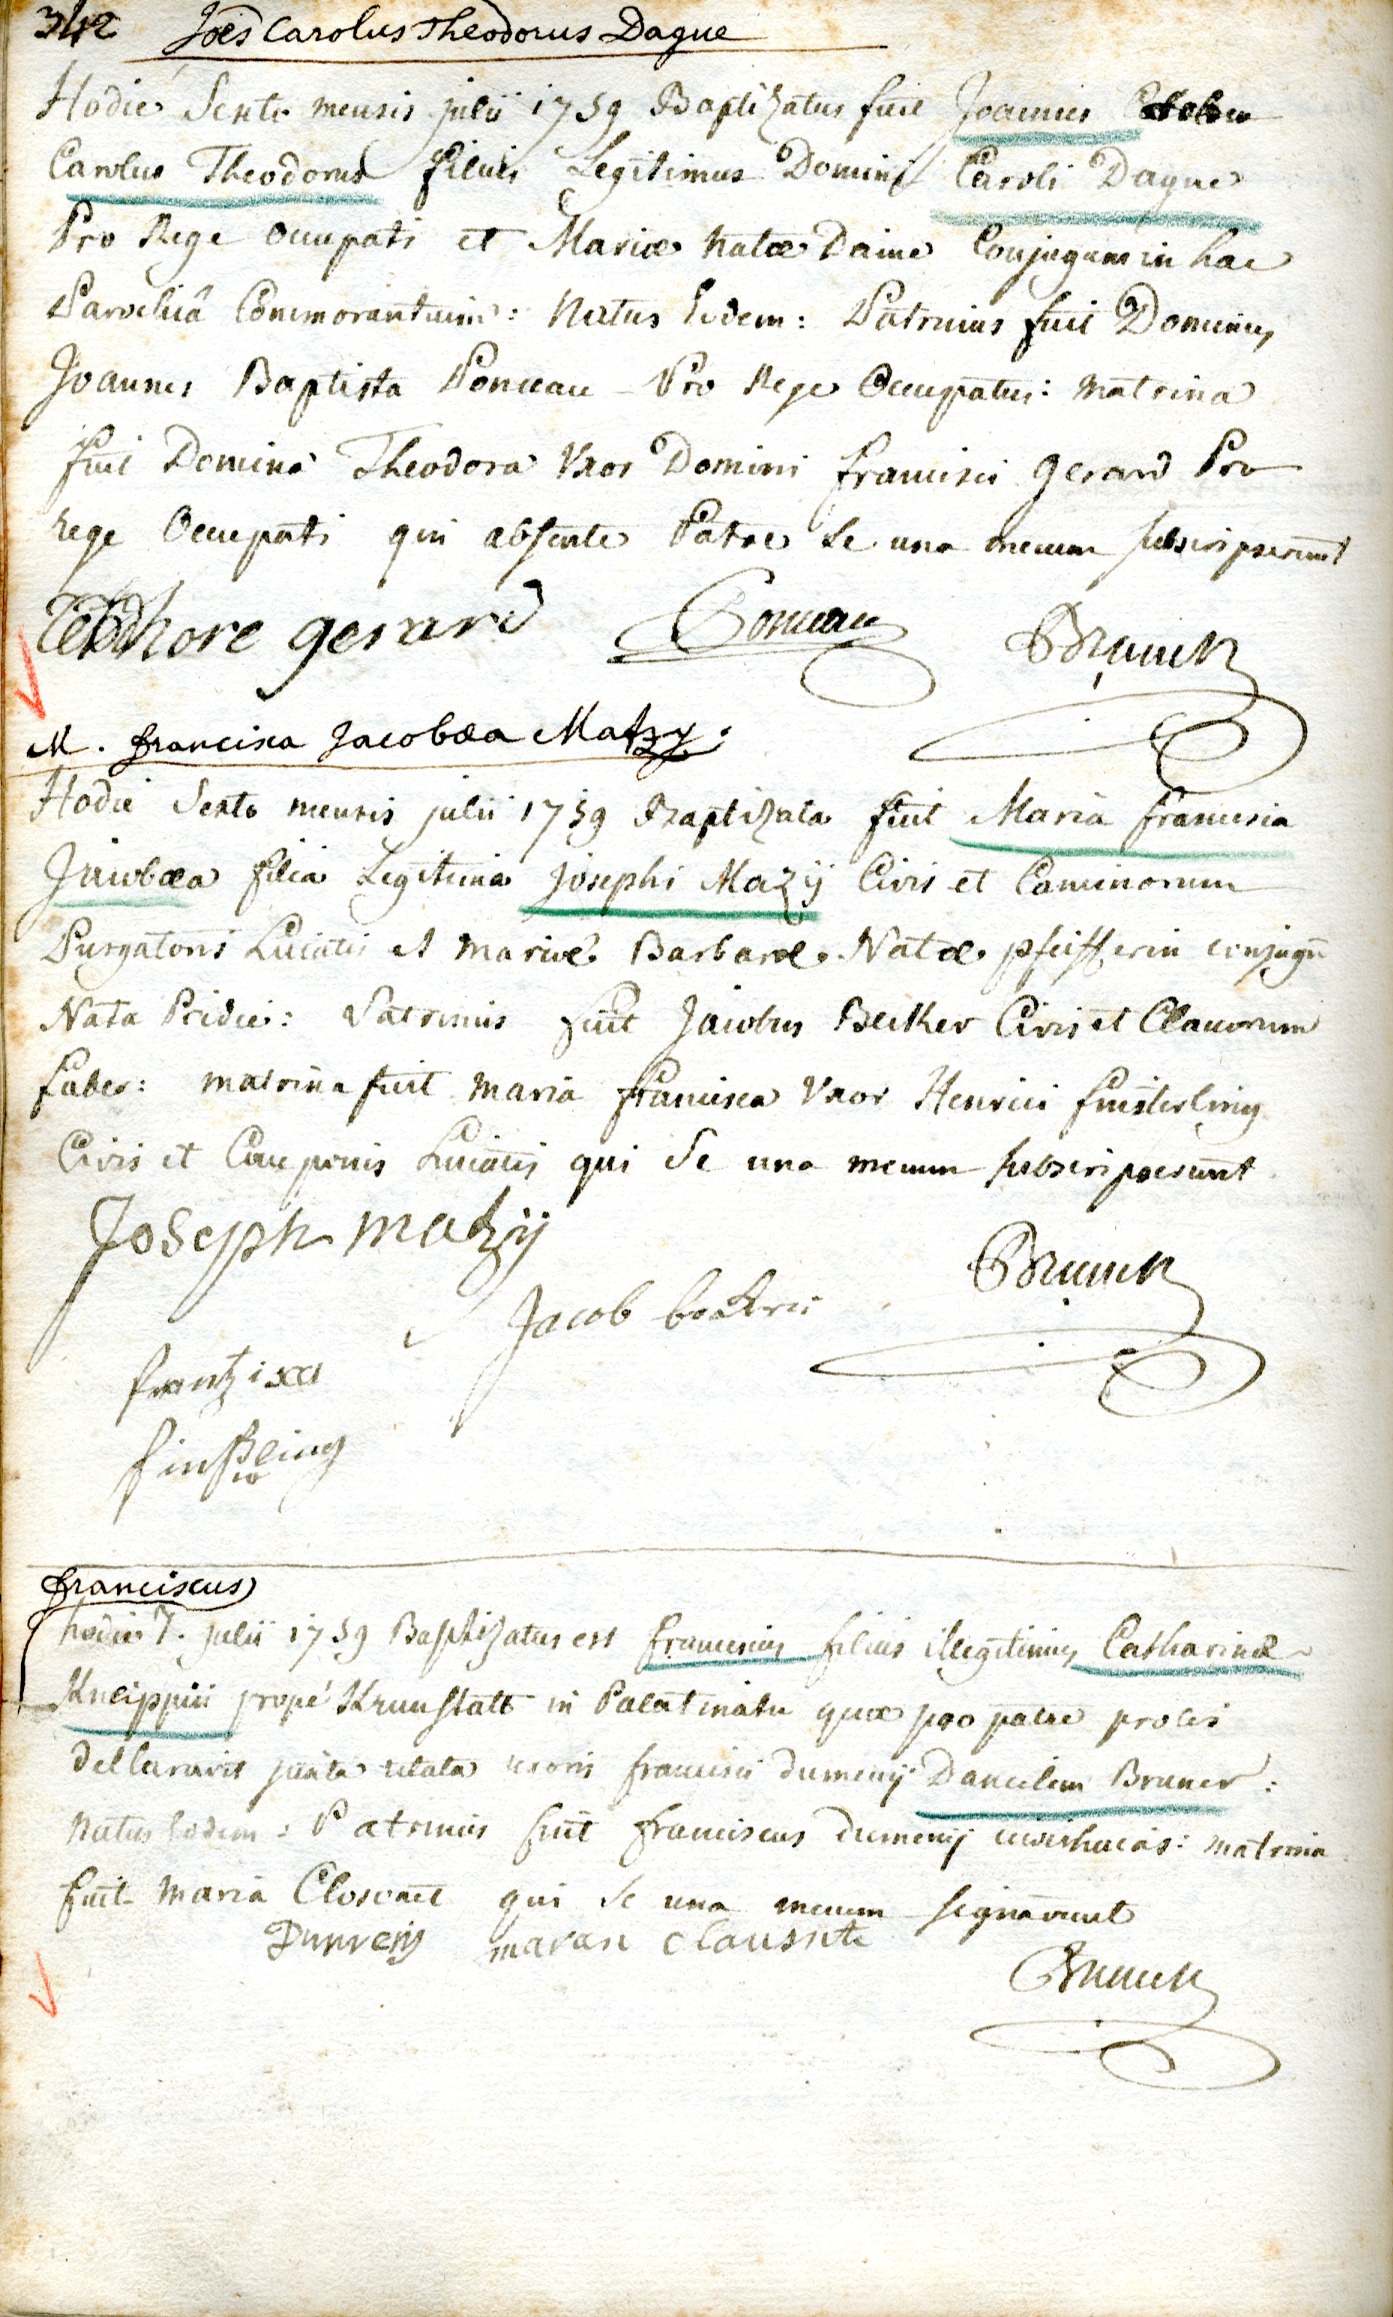 342 Joes Carolus Theodorus Dague
Hodie Sexto mensis julii 1759 Baptizatus fuit Joannes
Carolus Theodorus filius Legitimus Domini Caroli Dague
Pro Rege occupati et Mariæ natæ Daine Conjugum in hac
Parochiâ Commorantium: Natus Eodem: Patrinus fuit Dominus
Joannes Baptista Ponceau Pro Rege Occupatus: matrina
fuit Domina Theodora Uxor Domini francisci gerard Pro
rege Occupati qui absente Patre se una mecum subscripserunt
gerard Ponceau Brunck
M. francisca Jacobæa Matzy.
Hodie Sexto mensis julii 1759 Baptizata fuit Maria francisca
Jacobæa filia Legitima Josephi Mazÿ Civis et Caminorum
Purgatoris Luciatis et mariæ Barbaræ Natæ pfeifferin conjugū
Nata Pridie: Patrinus fuit Jacobus Becker Civis et Clavorum
faber: matrina fuit maria francisca Uxor Henrici finsterling
Civis et Cauponis Luciatis qui se una mecum subscripserunt
Joseph matzÿ
Brunck
Jacob
frantzisca
franciscus
hodie 7. julii 1759 Baptizatus est franciscus filius illegitimus Catharinæ
Kneippin prope Krunstatt in Palatinatu quæ pro patre prolis
dellaravit juxta relata uxoris francisci dumenÿ Danielem Bruner:
Natus Eodem: Patrinus fuit franciscus dumenÿ civis hucas: matrina
fuit Maria Closonet qui se una mecum signaverunt
maran
Brunck